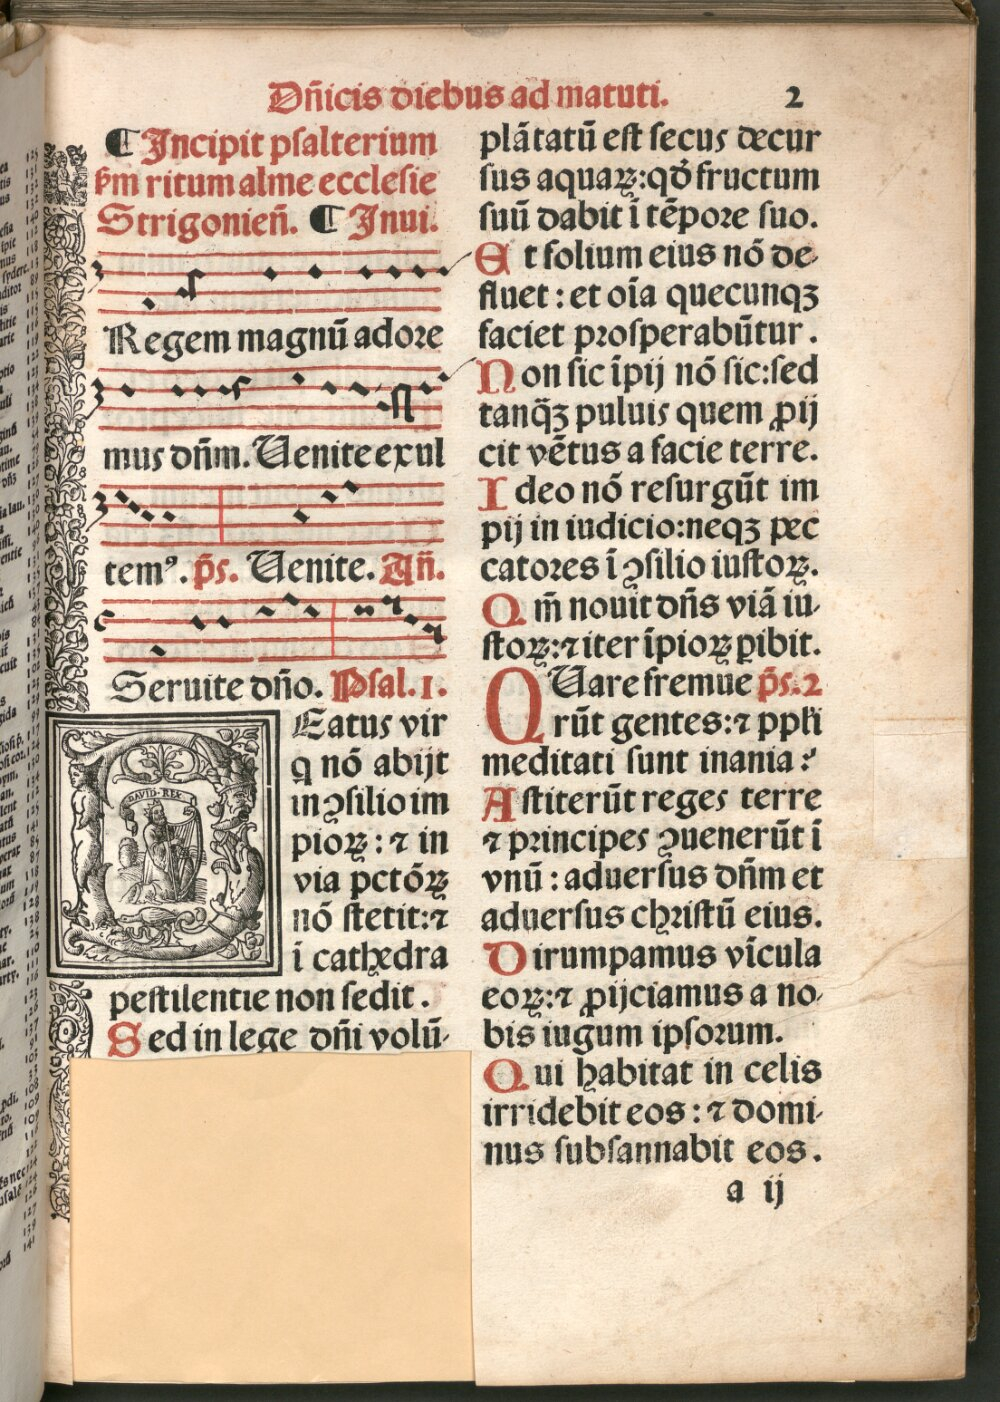 Dn̄icis diebus ad matuti. 2
¶ Incipit psalterium
ẜm ritum alme ecclesie
Strigonien̄. ¶ Inui.
Regem magnū adore
mus dn̄m. Uenite exul
temꝰ. p̄s. Uenite. An̄.
Seruite dn̄o. Psal. 1.
DAVID REX
Eatus vir
q nō abijt
in ꝯsilio im
pioꝝ : ⁊ in
via pctōꝝ
nō stetit:⁊
ī cathedra
pestilentie non sedit .
Sed in lege dn̄i volū-
plātatū est secus decur
sus aquaꝝ:qđ fructum
suū dabit ī tēpore suo.
Et folium eius nō de-
fluet : et oīa quecunqꝫ
faciet prosperabūtur .
Non sic īpij nō sic:sed
tanq̄ꝫ puluis quem ꝓij
cit vētus a facie terre.
Ideo nō resurgūt im
pij in iudicio:neqꝫ pec
catores ī ꝯsilio iustoꝝ.
Qm̄ nouit dn̄s viā iu-
stoꝝ:⁊ iter īpioꝝ ꝑibit.
QUare fremue p̄s.2
rūt gentes:⁊ ppl̄i
meditati sunt inania :
Astiterūt reges terre
⁊ principes ꝯuenerūt ī
vnū : aduersus dn̄m et
aduersus christū eius.
Dirumpamus vīcula
eoꝝ:⁊ ꝓijciamus a no-
bis iugum ipsorum.
Qui habitat in celis
irridebit eos : ⁊ domi-
nus subsannabit eos .
a ij